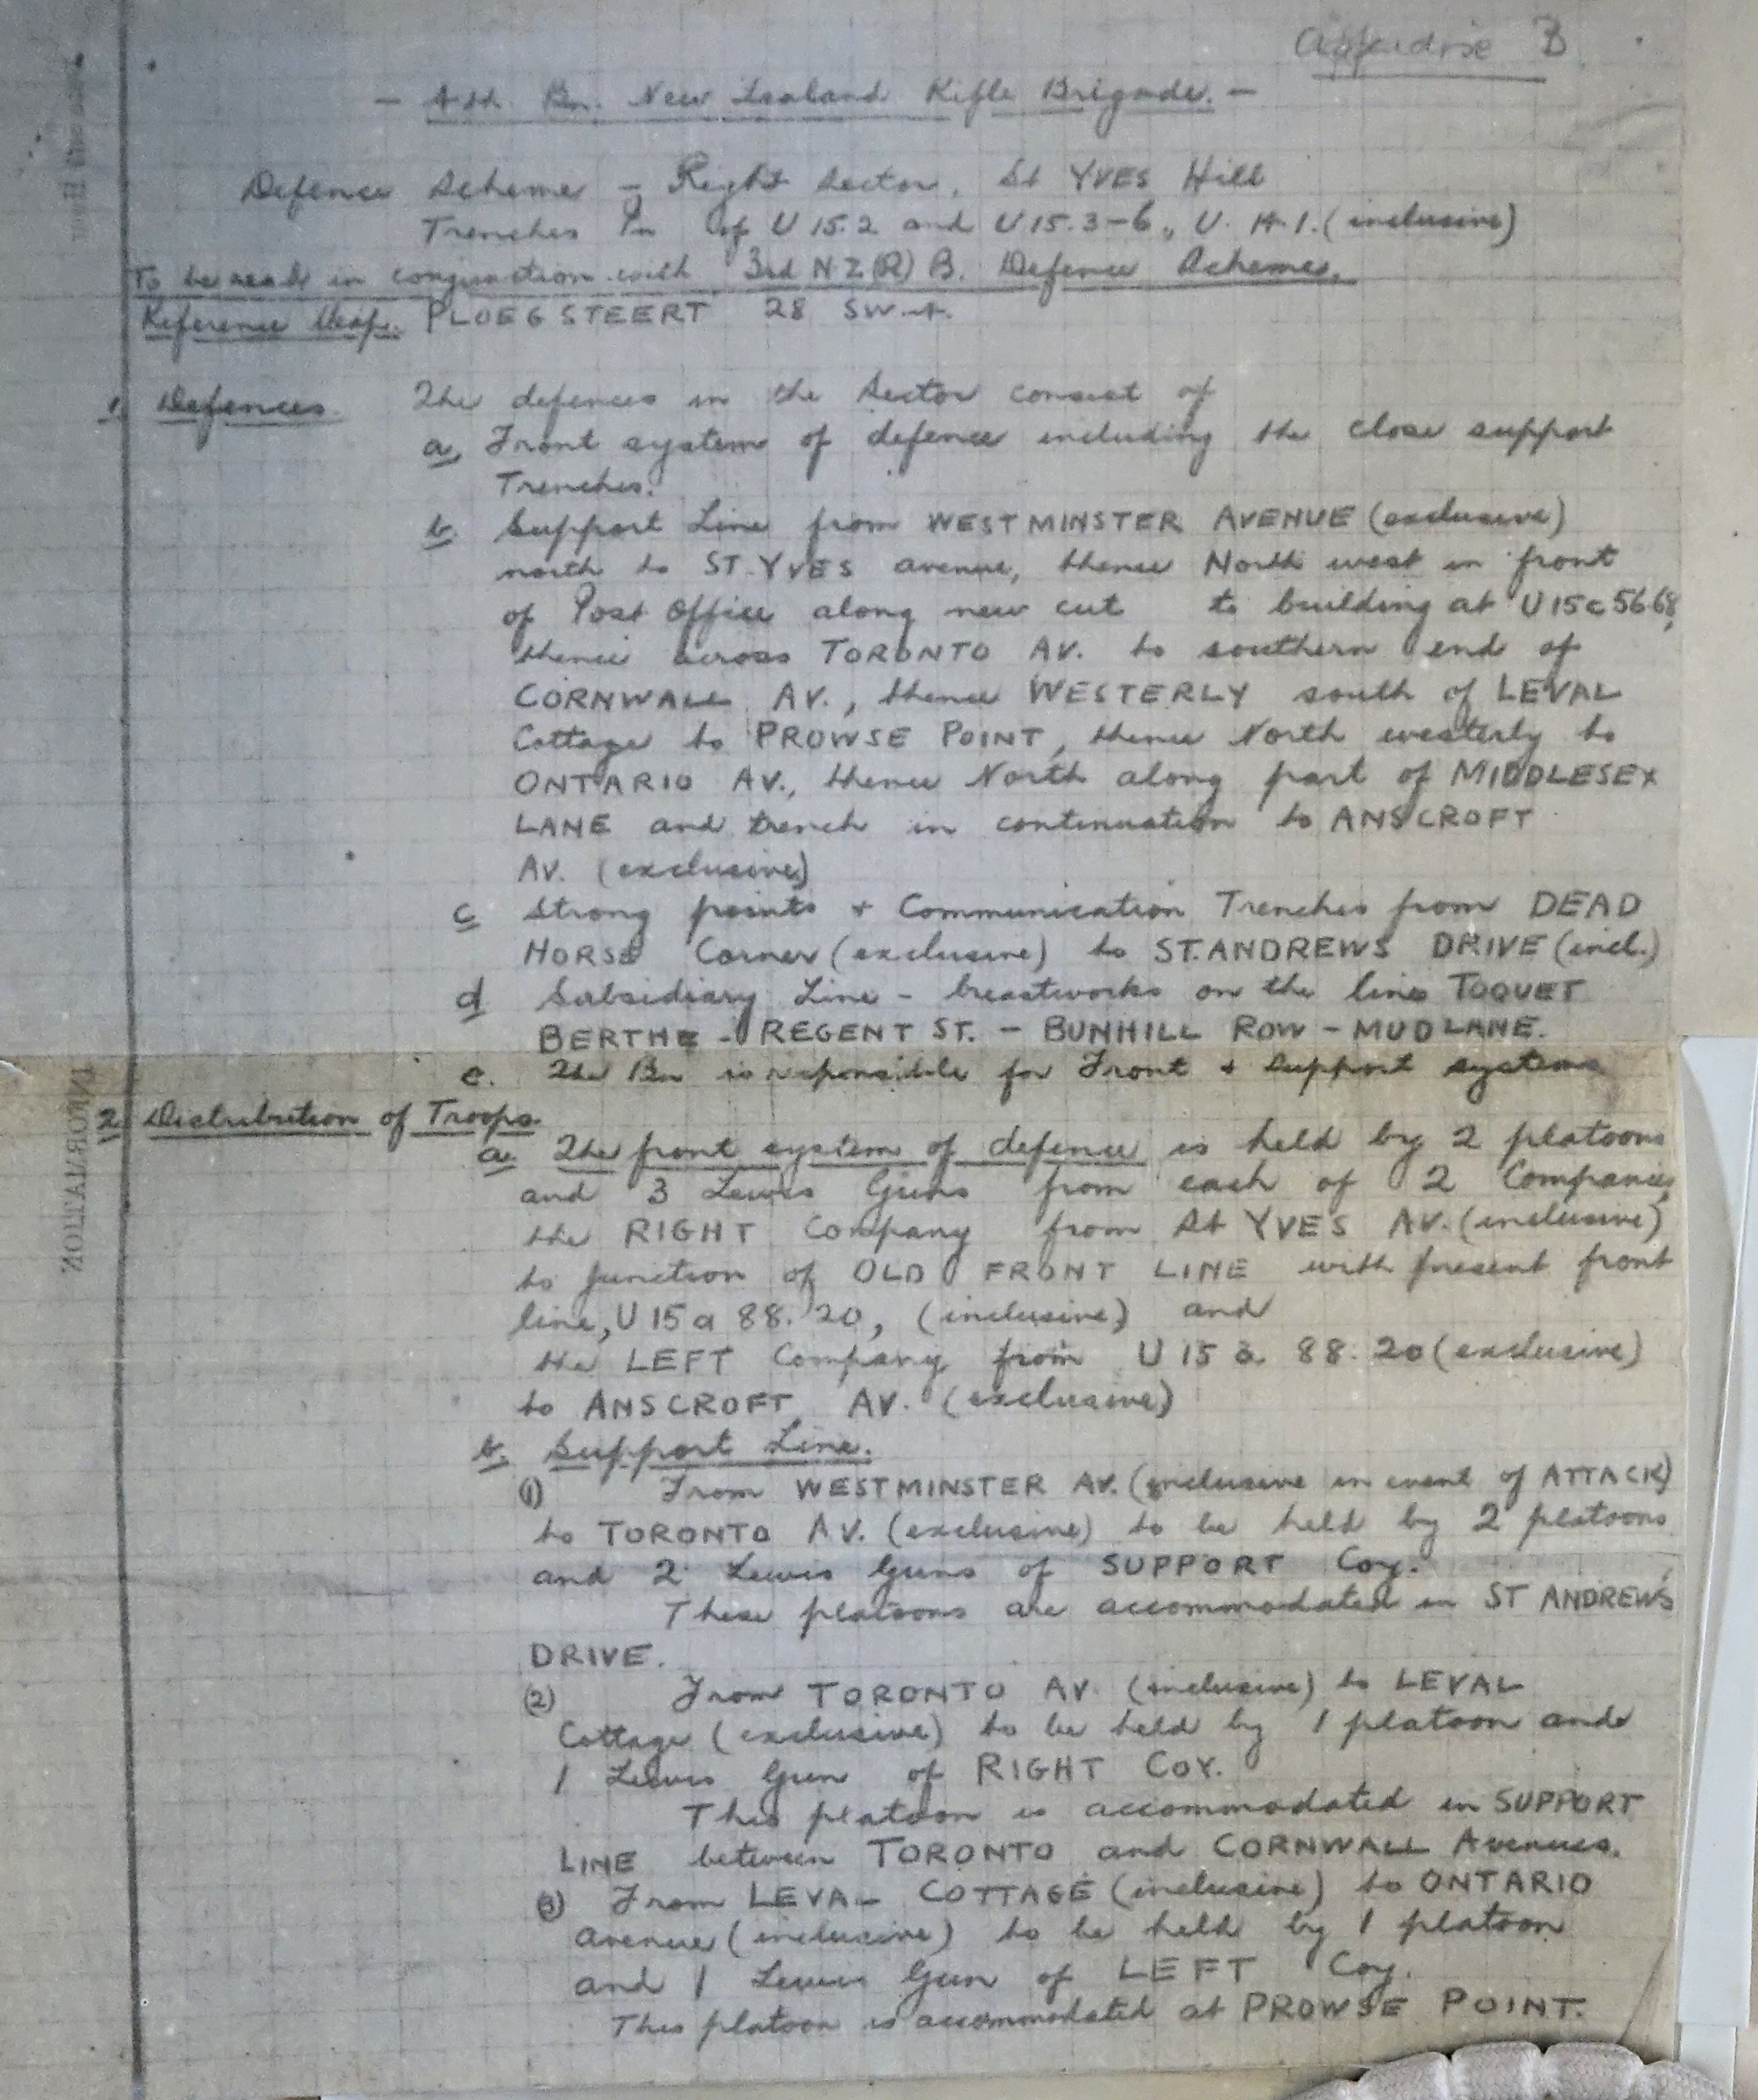 Appendix B
- 4th. Bn. New Zealand Rifle Brigade. -
Defence Scheme - Right Sector, St YVES Hill
Trenches of U 15.2 and U 15.3-6, U. H.1. (inclusive)
To be read in conjunction with 3rd N Z (R) B. Defence Schemes.
Reference Map. PLOEGSTEERT 28 SW.4.
1. Defences. The defences in the Sector consist of
a, Front system of defence including the close support
Trenches.
b. Support Line from WESTMINSTER AVENUE (exclusive)
north to ST. YVES avenue, thence North west in front
of Post Office along new cut to building at U 15 c 56 68,
thence across TORONTO AV. to southern end of
CORNWALL AV., thence WESTERLY south of LEVAL
Cottage to PROWSE POINT, thence North westerly to
ONTARIO AV., thence North along part of MIDDLESEX
LANE and trench in continuation to ANSCROFT
AV. (exclusive)
c Strong points + Communication Trenches from DEAD
HORSE Corner (exclusive) to ST. ANDREWS DRIVE (incl.)
d Subsidiary Line - breastworks on the line TOQUET
BERTHE - REGENT ST. - BUNHILL ROW - MUD LANE.
e. The Bn is responsible for Front + Support systems
2 Distribution of Troops.
a. The front system of defence is held by 2 platoons
and 3 Lewis Guns from each of 2 Companies,
the RIGHT Company from St YVES AV. (inclusive)
to junction of OLD FRONT LINE with present front
line, U 15 a 88. 20, (inclusive) and
the LEFT Company from U 15 a. 88. 20 (exclusive)
to ANSCROFT AV. (exclusive)
b. Support Line.
(1) From WESTMINSTER AV. (inclusive in event of ATTACK)
to TORONTO AV. (exclusive) to be held by 2 platoons
and 2 Lewis Guns of SUPPORT Coy.
These platoons are accommodated in ST ANDREWS
DRIVE.
(2) From TORONTO AV. (inclusive) to LEVAL
Cottage (exclusive) to be held by 1 platoon and
1 Lewis Gun of RIGHT COY.
This platoon is accommodated in SUPPORT
LINE between TORONTO and CORNWALL Avenues.
(3) From LEVAL COTTAGE (inclusive) to ONTARIO
avenue (inclusive) to be held by 1 platoon
and 1 Lewis Gun of LEFT Coy.
This platoon is accommodated at PROWSE POINT.